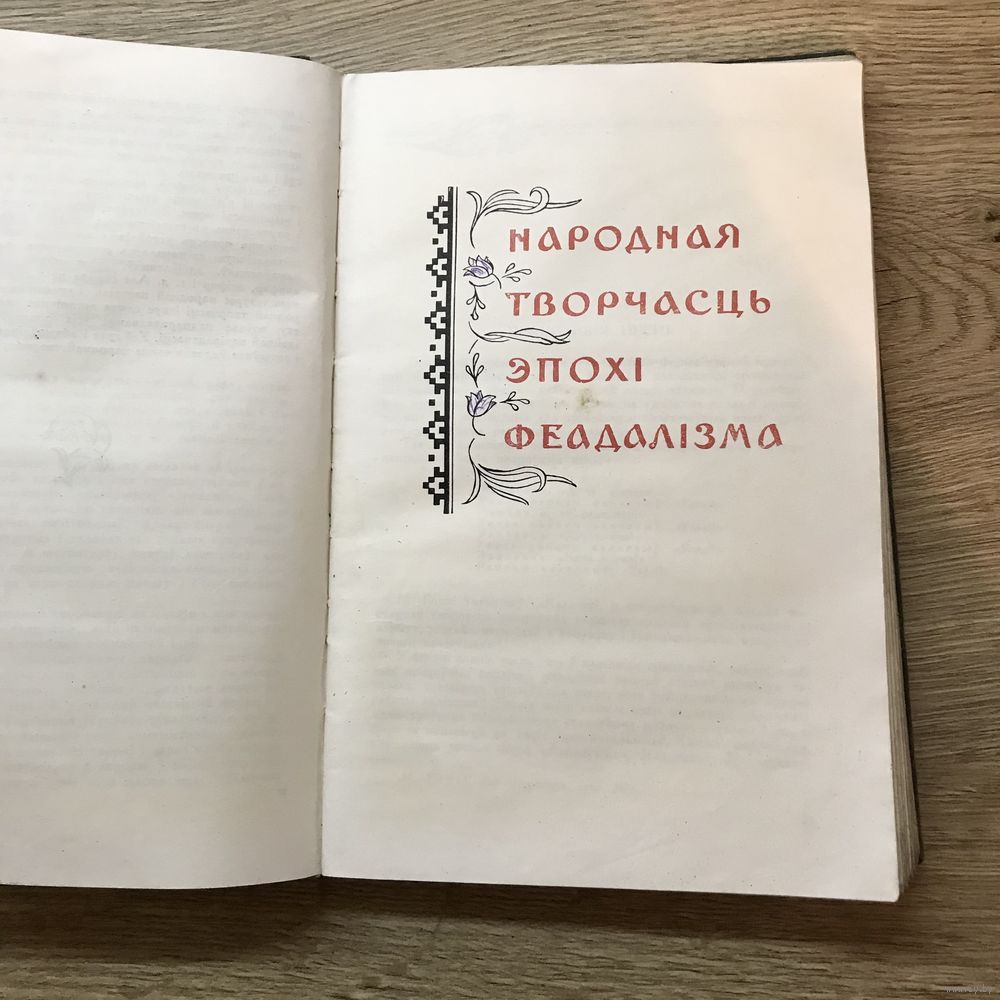 НАРОДНАЯ
ТВОРЧАСЦЬ
ЭПОХІ
ФЕАДАЛІЗМА